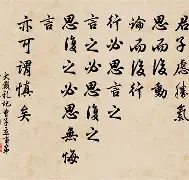 君子慮勝氣
思而後動
論而後行
行必思言之
言之必思復之
思復之必思無悔
言
亦可謂慎矣
大戴禮記曾子立事